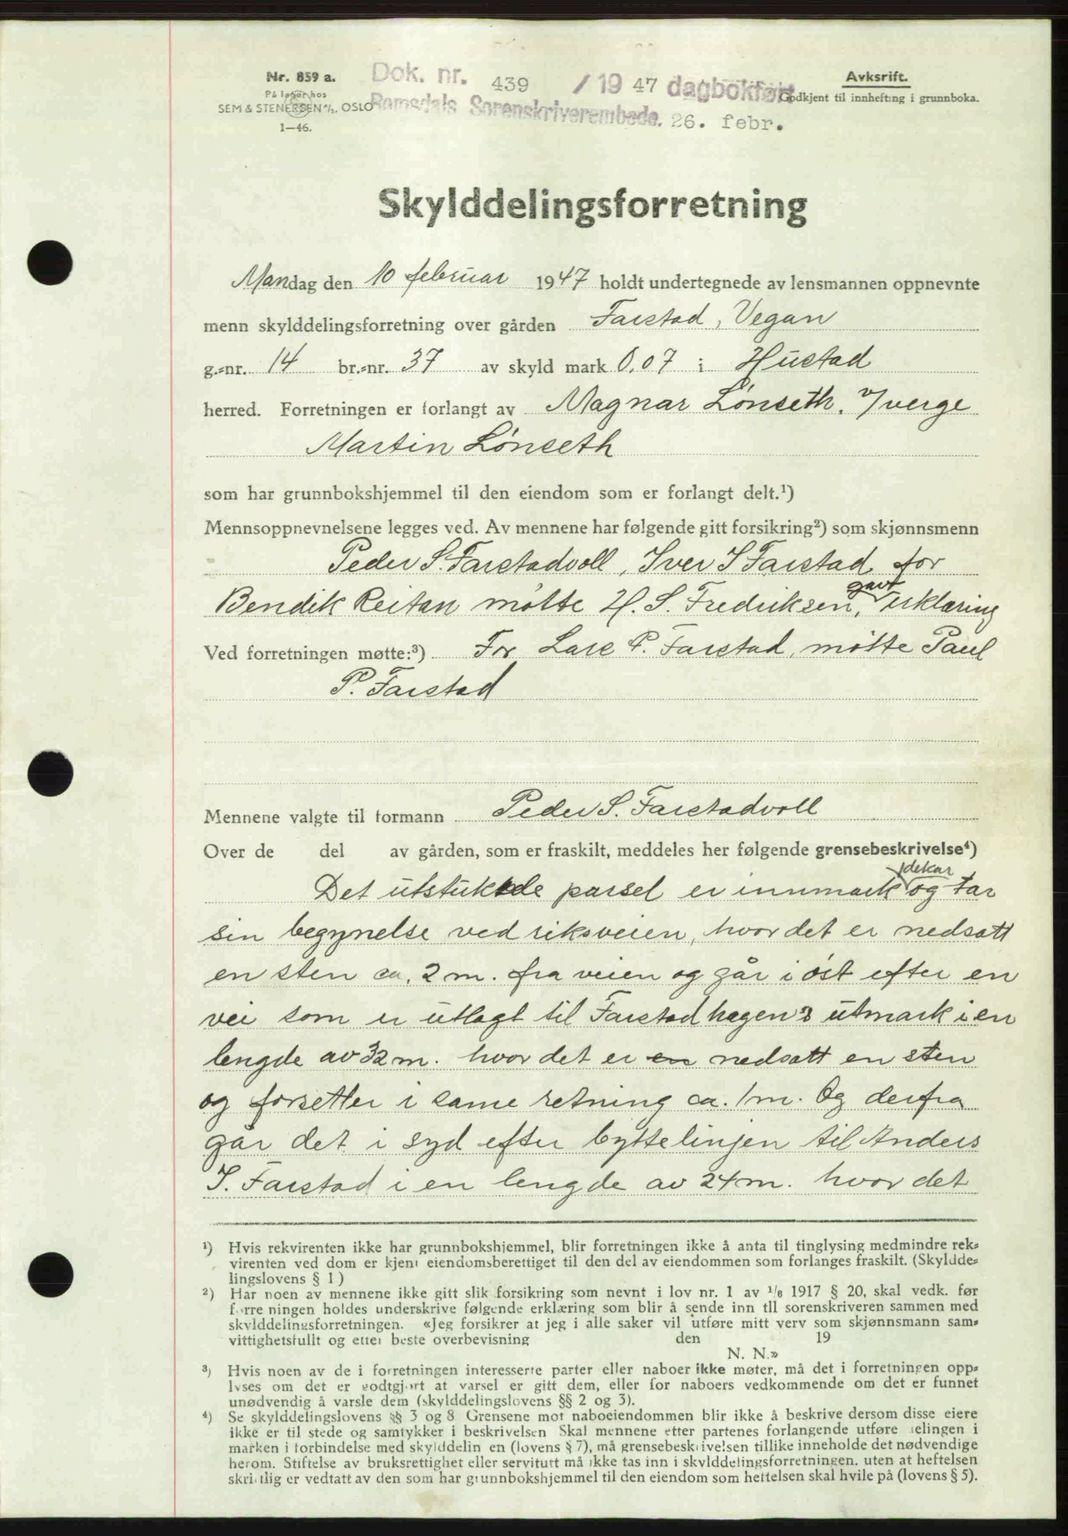 Nr. 859 a.
På lager hos
SEM & STENERSEN A/S, OSLO
1—46.
Dok. nr. 439 / 1947 dagbokført
Romsdals Sorenskriverembede. 26. febr.
Avksrift.
Godkjent til innhefting i grunnboka.
Skylddelingsforretning
Mandag den 10 februar 1947 holdt undertegnede av lensmannen oppnevnte
menn skylddelingsforretning over gården Farstad, Vegan
g.-nr. 14 br.-nr. 37 av skyld mark 0,07 i Hustad
herred. Forretningen er forlangt av Magnar Lønseth, Verge
Martin Lønseth
som har grunnbokshjemmel til den eiendom som er forlangt delt.¹)
Mennsoppnevnelsene legges ved. Av mennene har følgende gitt forsikring²) som skjønnsmenn
Peder S. Farstadvoll, Iver I Farstad, for
Bendik Reitan møtte H. S. Fredriksen, gavt erklæring
Ved forretningen møtte:³) For Lars P. Farstad, møtte Paul
P. Farstad
Mennene valgte til formann Peder S. Farstadvoll
Over de del av gården, som er fraskilt, meddeles her følgende grensebeskrivelse⁴)
1 dekar
Det utstukkede parsel er innmark og tar
sin begynelse ved riksveien, hvor det er nedsatt
en sten ca. 2 m. fra veien og går i øst efter en
vei som er utlagt til Farstadhagen's utmark i en
lengde av 32 m. hvor det er en nedsatt en sten
og forsetter i same retning ca. 1 m. Og derfra
går det i syd efter byttelinjen til Anders
I. Farstad i en lengde av 24 m. hvor det
¹) Hvis rekvirenten ikke har grunnbokshjemmel, blir forretningen ikke å anta til tinglysing medmindre rek-
virenten ved dom er kjent eiendomsberettiget til den del av eiendommen som forlanges fraskilt. (Skyldde-
lingslovens § 1)
²) Har noen av mennene ikke gitt slik forsikring som nevnt i lov nr. 1 av 1/6 1917 § 20, skal vedk. før
forretningen holdes underskrive følgende erklæring som blir å sende inn til sorenskriveren sammen med
skylddelingsforretningen. «Jeg forsikrer at jeg i alle saker vil utføre mitt verv som skjønnsmann sam-
vittighetsfullt og etter beste overbevisning den 19
N. N.»
³) Hvis noen av de i forretningen interesserte parter eller naboer ikke møter, må det i forretningen opp-
lyses om det er godtgjort at varsel er gitt dem, eller for naboers vedkommende om det er funnet
unødvendig å varsle dem (skylddelingslovens §§ 2 og 3).
⁴) Se skylddelingslovens §§ 3 og 8 Grensene mot naboeiendommen blir ikke å beskrive dersom disse eiere
ikke er til stede og samtykker i beskrivelsen Skal mennene etter partenes forlangende utføre delingen i
marken i forbindelse med skylddelingen (lovens § 7), må grensebeskrivelsen tillike inneholde det nødvendige
herom. Stiftelse av bruksrettighet eller servitutt må ikke tas inn i skylddelingsforretningen, uten at heftelsen
skriftlig er vedtatt av den som har grunnbokshjemmel til den eiendom som heftelsen skal hvile på (lovens § 5).